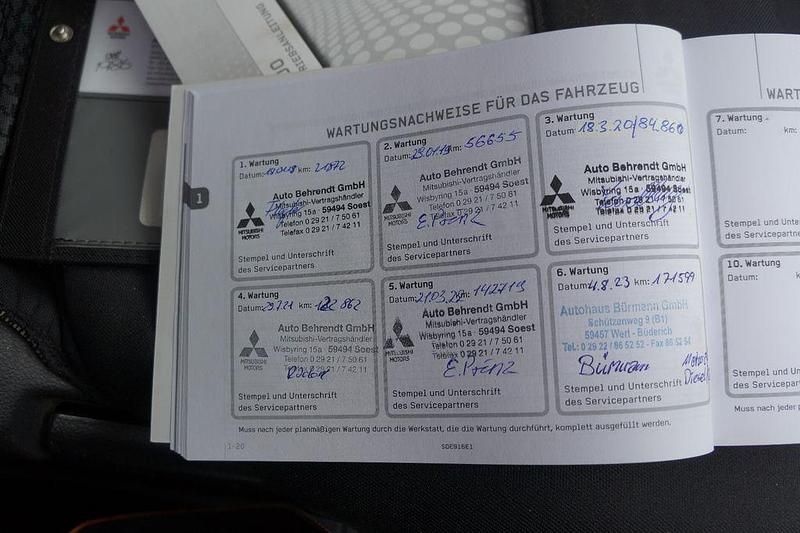 RIEBSANLEITUNG
WARTUNGSNACHWEISE FÜR DAS FAHRZEUG
1. Wartung
Datum: km: 21872
Auto Behrendt GmbH
Mitsubishi-Vertragshändler
Wisbyring 15a · 59494 Soest
Telefon 0 29 21 / 7 50 61
Telefax 0 29 21 / 7 42 11
MITSUBISHI
MOTORS
Stempel und Unterschrift
des Servicepartners
2. Wartung
Datum: km: 56655
Auto Behrendt GmbH
Mitsubishi-Vertragshändler
Wisbyring 15a · 59494 Soest
Telefon 0 29 21 / 7 50 61
Telefax 0 29 21 / 7 42 11
MITSUBISHI
MOTORS
Stempel und Unterschrift
des Servicepartners
3. Wartung
Datum 18.3.20 / 84.860
Auto Behrendt GmbH
Mitsubishi-Vertragshändler
Wisbyring 15a · 59494 Soest
Telefon 0 29 21 / 7 50 61
Telefax 0 29 21 / 7 42 11
MITSUBISHI
MOTORS
Stempel und Unterschrift
des Servicepartners
4. Wartung
Datum: km: 122 862
Auto Behrendt GmbH
Mitsubishi-Vertragshändler
Wisbyring 15a · 59494 Soest
Telefon 0 29 21 / 7 50 61
Telefax 0 29 21 / 7 42 11
MITSUBISHI
MOTORS
Stempel und Unterschrift
des Servicepartners
5. Wartung
Datum: 21.03.22 km: 142713
Auto Behrendt GmbH
Mitsubishi-Vertragshändler
Wisbyring 15a · 59494 Soest
Telefon 0 29 21 / 7 50 61
Telefax 0 29 21 / 7 42 11
MITSUBISHI
MOTORS
Stempel und Unterschrift
des Servicepartners
6. Wartung
Datum: 4.8.23 km: 171599
Autohaus Bürmann GmbH
Schützenweg 9 (B1)
59457 Werl - Büderich
Tel.: 0 29 22 / 86 52 52 - Fax 86 52 54
Bürmann
Stempel und Unterschrift
des Servicepartners
Muss nach jeder planmäßigen Wartung durch die Werkstatt, die die Wartung durchführt, komplett ausgefüllt werden.
1-20
SDE916E1
1
WART
7. Wartung
Datum:
Stempel und Unters
des Servicepartners
10. Wartung
Datum:
Stempel und Unter
des Servicepartner
Muss nach jeder p